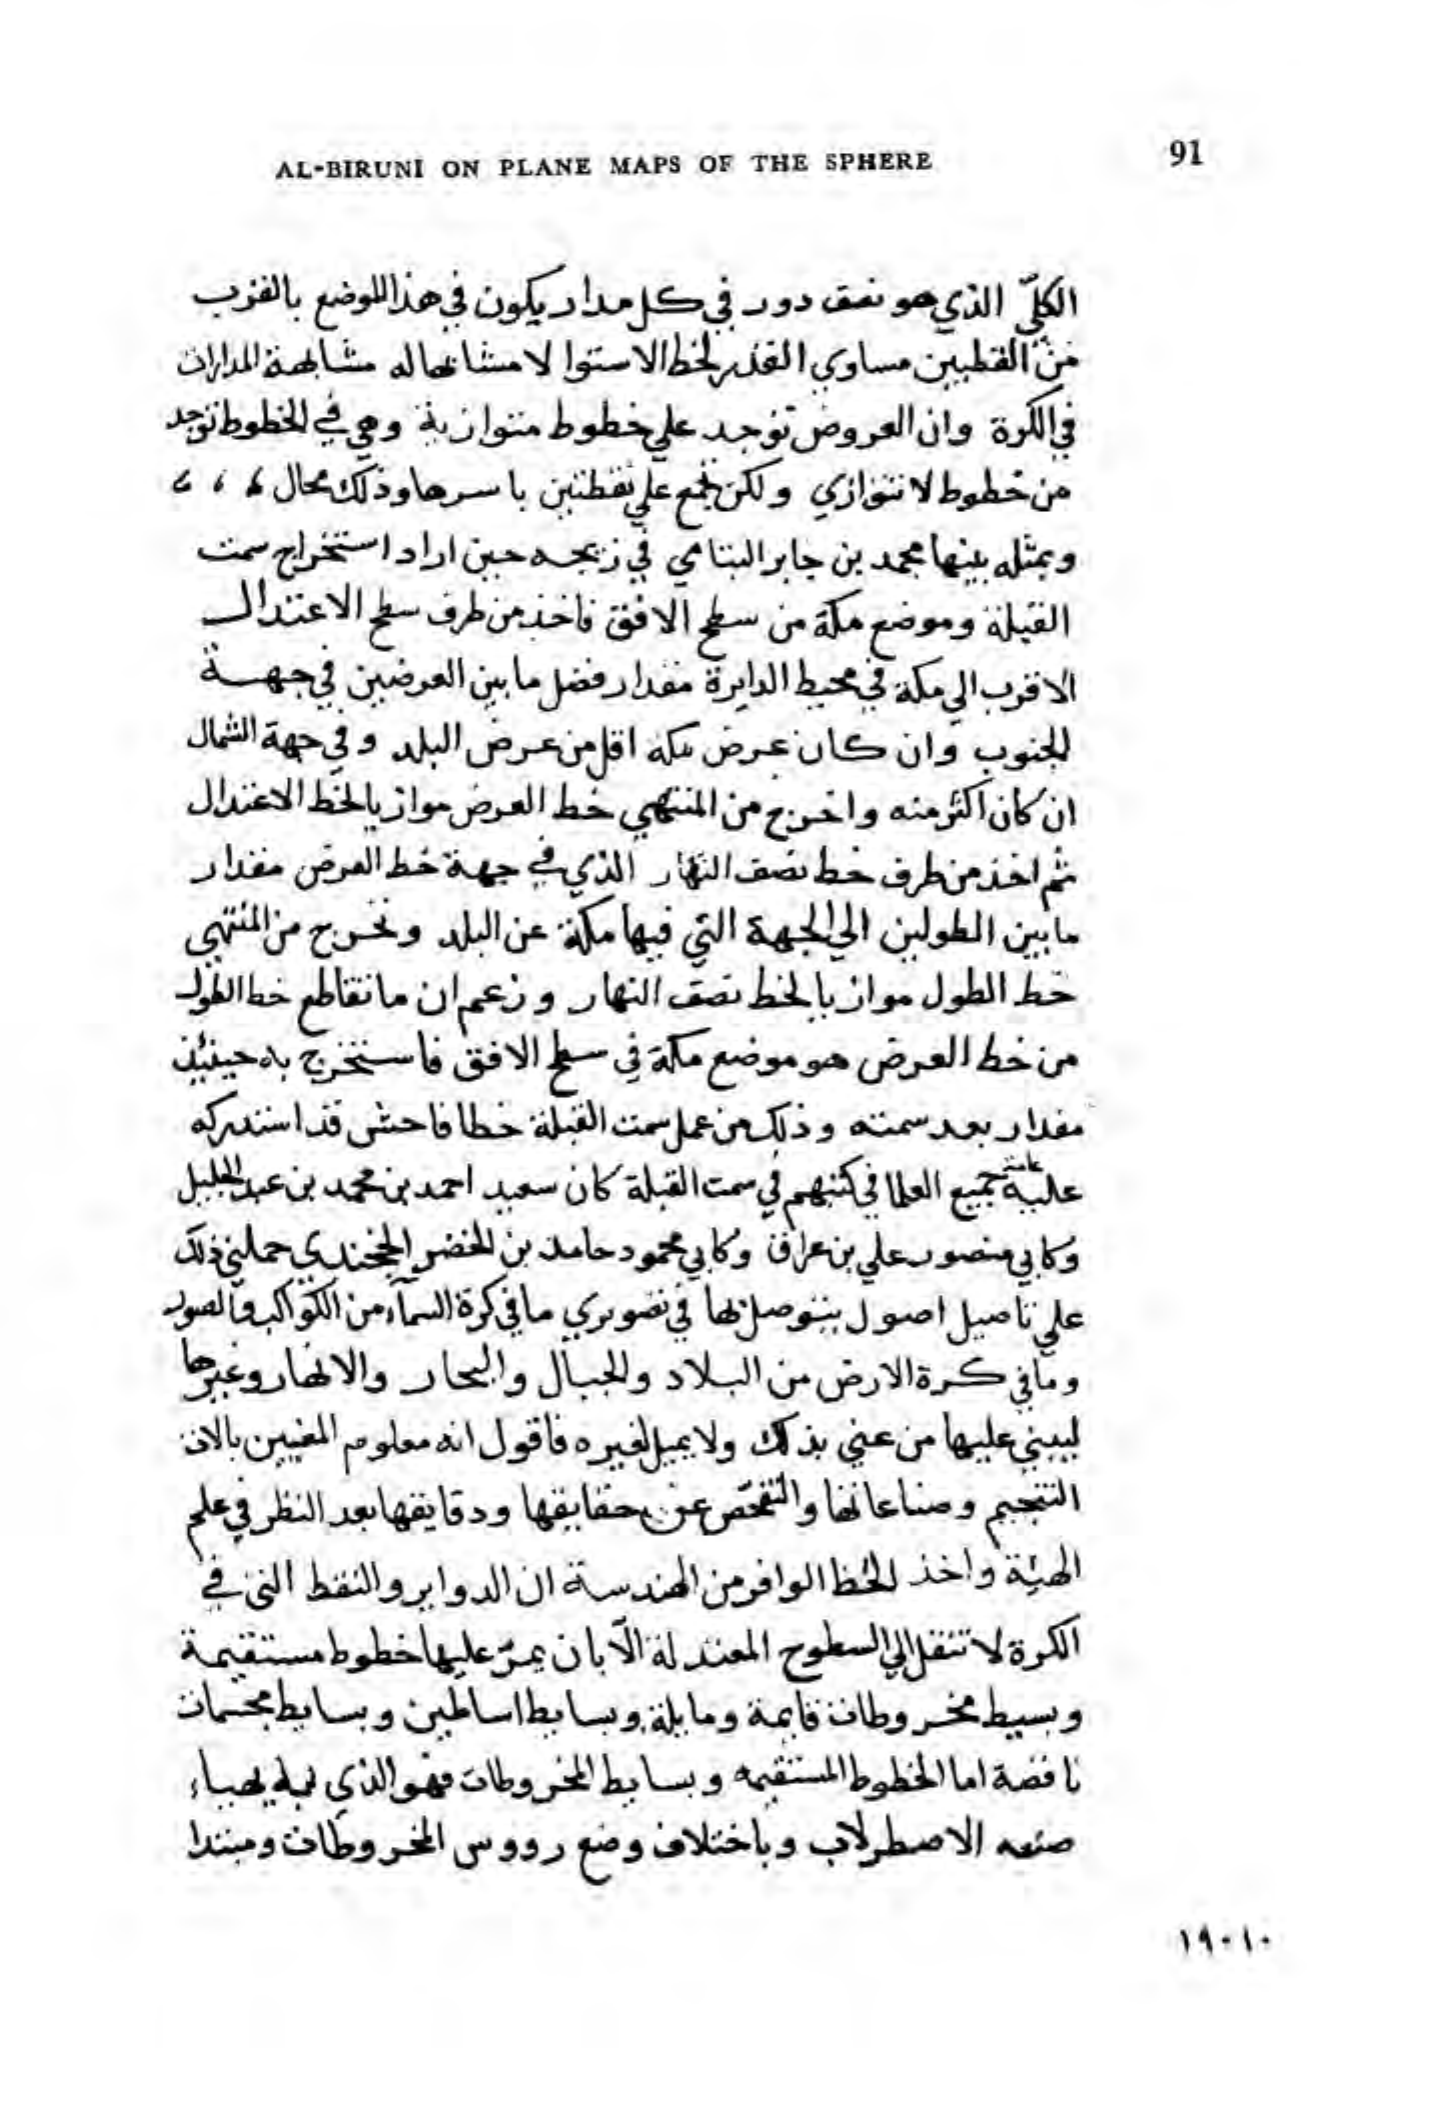 AL-BIRUNI ON PLANE MAPS OF THE SPHERE 91
الكلّي الذي هو نصف دور في كل مدار يكون في هذا الموضع بالقرب
من القطبين مساوي القدر لخط الاستوا لا مشابها له مشابهة المدارات
في الكرة وان العروض توجد علي خطوط متوازية وهي في الخطوط توجد
من خطوط لا تتوازي ولكن تجمع علي نقطتين باسرها وذلك محال
وبمثله بينها محمد بن جابر البتاني في زيجه حين اراد استخراج سمت
القبلة وموضع مكة من سطح الافق فاخذ من طرف سطح الاعتدال
الاقرب الي مكة في محيط الدايرة مقدار فضل ما بين العرضين في جهة
الجنوب وان كان عرض مكة اقل من عرض البلد وفي جهة الشمال
ان كان اكثر منه واخرج من المنتهي خط العرض موازيا لخط الاعتدال
ثم اخذ من طرف خط نصف النهار الذي في جهة خط العرض مقدار
ما بين الطولين الي الجهة التي فيها مكة عن البلد ونخرج من المنتهي
خط الطول موازيا لخط نصف النهار وزعم ان ما تقاطع خط الطول
من خط العرض هو موضع مكة في سطح الافق فاستخرج به حينئذ
مقدار بعد سمته وذلك من عمل سمت القبلة خطا فاحش قد استدركه
عليه عامة جميع العلما في كتبهم في سمت القبلة كان سعيد احمد بن محمد بن عبد الجليل
وكابي منصور علي بن عراق وكابي محمود حامد بن الخضر الخجندي حملني ذلك
علي تاصيل اصول يتوصل بها في تصويري ما في كرة السمآء من الكواكب والصور
وما في كرة الارض من البلاد والجبال والبحار والانهار وغيرها
ليبني عليها من عني بذلك ولا يميل لغيره فاقول انه معلوم بالات
التنجيم وصناعاتها والتفحّص عن حقايقها ودقايقها بعد النظر في علم
الهيئة واخذ الحظ الوافر من الهندسة ان الدواير والنقط التي في
الكرة لا تنتقل الي السطوح المعتدلة الّا بان يمرّ عليها خطوط مستقيمة
وبسيط مخروطات قايمة ومايلة وبسايط اساطين وبسايط مجسمات
ناقصة اما الخطوط المستقيمه وبسايط المخروطات فهو الذي
صنعه الاصطرلاب وباختلاف وضع رووس المخروطات ومبتدا
١٩٠١٠